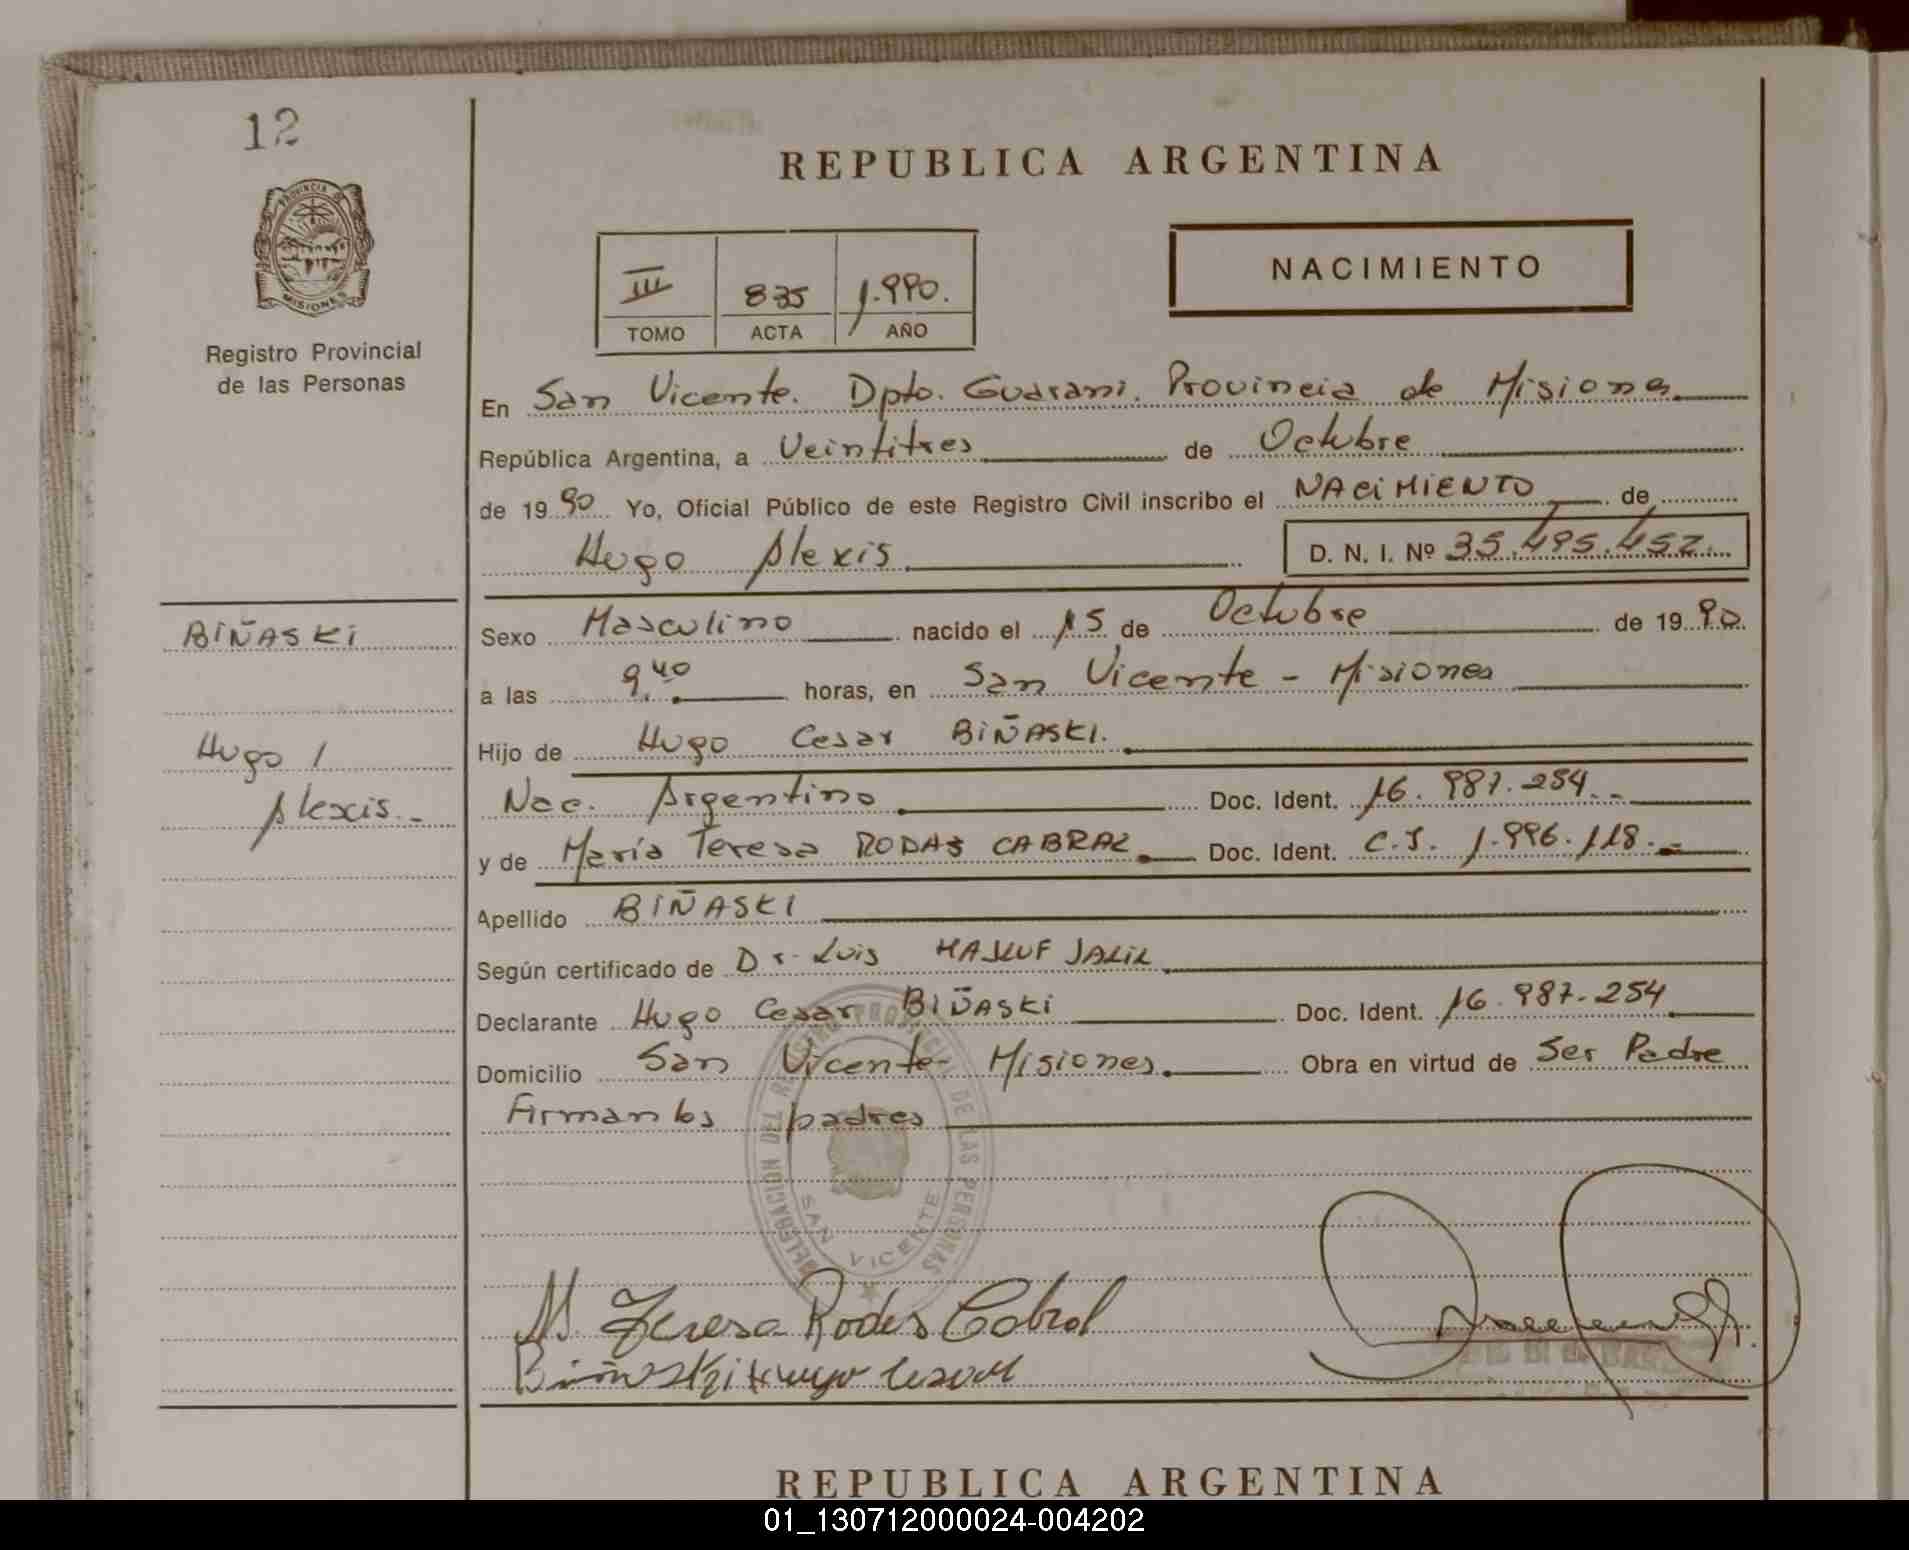 12
PROVINCIA
MISIONES
Registro Provincial
de las Personas
REPUBLICA ARGENTINA
III 835 1.990.
TOMO ACTA AÑO
NACIMIENTO
En San Vicente. Dpto. Guarani. Provincia de Misiones
República Argentina, a Veintitres de Octubre
de 1990 Yo, Oficial Público de este Registro Civil inscribo el NACIMIENTO de
Hugo Alexis D. N. I. Nº 35.495.452.
BIÑASKI
Hugo /
Alexis.-
Sexo Masculino nacido el 15 de Octubre de 1990.
a las 9.40 horas, en San Vicente - Misiones
Hijo de Hugo Cesar BIÑASKI.
Nac. Argentino Doc. Ident. 16.987.254.-
y de María Teresa RODAS CABRAL Doc. Ident. C.I. 1.996.118.-
Apellido BIÑASKI
Según certificado de Dr. Luis MASLUF JALIL
Declarante Hugo Cesar BIÑASKI Doc. Ident. 16.987.254
Domicilio San Vicente- Misiones. Obra en virtud de Ser Padre
Firman los padres
DELEGACION DEL REGISTRO PROVINCIAL DE LAS PERSONAS
SAN VICENTE
M. Teresa Rodas Cabral
Biñaski Hugo Cesar
REPUBLICA ARGENTINA
01_130712000024-004202